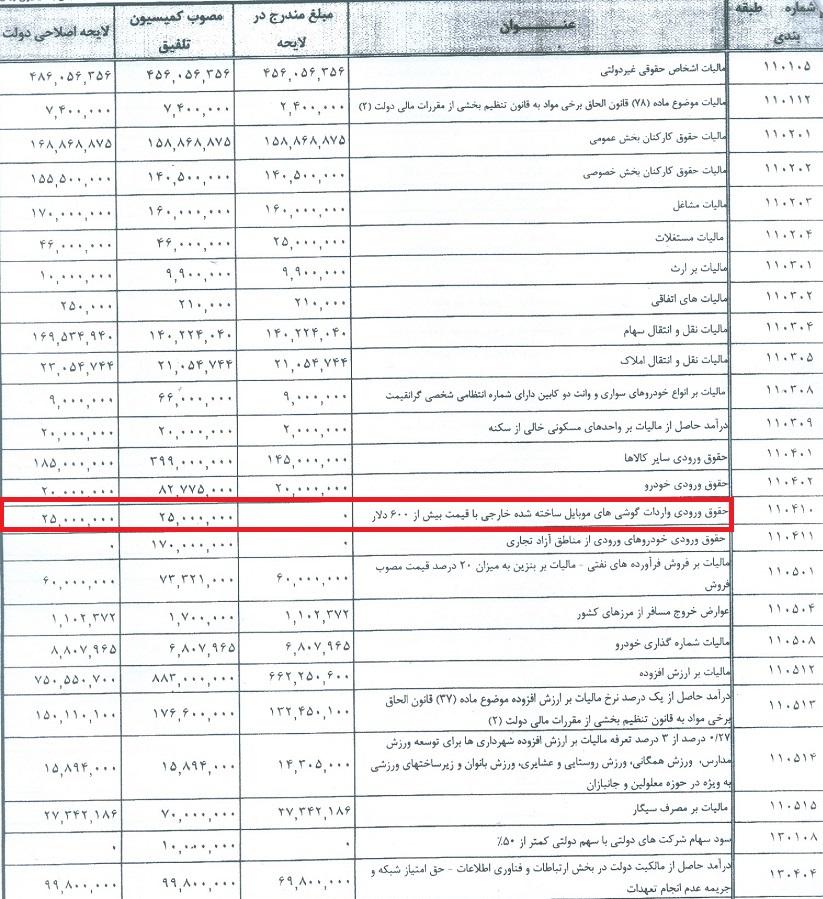 شماره طبقه بندی | عنـــــوان | مبلغ مندرج در لایحه | مصوب کمیسیون تلفیق | لایحه اصلاحی دولت
۱۱۰۱۰۵ | مالیات اشخاص حقوقی غیردولتی | ۴۵۶,۰۵۶,۳۵۶ | ۴۵۶,۰۵۶,۳۵۶ | ۴۸۶,۰۵۶,۳۵۶
۱۱۰۱۱۲ | مالیات موضوع ماده (۷۸) قانون الحاق برخی مواد به قانون تنظیم بخشی از مقررات مالی دولت (۲) | ۲,۴۰۰,۰۰۰ | ۷,۴۰۰,۰۰۰ | ۷,۴۰۰,۰۰۰
۱۱۰۲۰۱ | مالیات حقوق کارکنان بخش عمومی | ۱۵۸,۸۶۸,۸۷۵ | ۱۵۸,۸۶۸,۸۷۵ | ۱۶۸,۸۶۸,۸۷۵
۱۱۰۲۰۲ | مالیات حقوق کارکنان بخش خصوصی | ۱۴۰,۵۰۰,۰۰۰ | ۱۴۰,۵۰۰,۰۰۰ | ۱۵۵,۵۰۰,۰۰۰
۱۱۰۲۰۳ | مالیات مشاغل | ۱۶۰,۰۰۰,۰۰۰ | ۱۶۰,۰۰۰,۰۰۰ | ۱۷۰,۰۰۰,۰۰۰
۱۱۰۲۰۴ | مالیات مستغلات | ۲۵,۰۰۰,۰۰۰ | ۴۶,۰۰۰,۰۰۰ | ۴۶,۰۰۰,۰۰۰
۱۱۰۳۰۱ | مالیات بر ارث | ۹,۹۰۰,۰۰۰ | ۹,۹۰۰,۰۰۰ | ۱۰,۰۰۰,۰۰۰
۱۱۰۳۰۲ | مالیات های اتفاقی | ۲۱۰,۰۰۰ | ۲۱۰,۰۰۰ | ۲۵۰,۰۰۰
۱۱۰۳۰۴ | مالیات نقل و انتقال سهام | ۱۴۰,۲۲۴,۰۴۰ | ۱۴۰,۲۲۴,۰۴۰ | ۱۶۹,۵۳۴,۹۴۰
۱۱۰۳۰۵ | مالیات نقل و انتقال املاک | ۲۱,۰۵۴,۷۴۴ | ۲۱,۰۵۴,۷۴۴ | ۲۳,۰۵۴,۷۴۴
۱۱۰۳۰۸ | مالیات بر انواع خودروهای سواری و وانت دو کابین دارای شماره انتظامی شخصی گرانقیمت | ۹,۰۰۰,۰۰۰ | ۶۶,۰۰۰,۰۰۰ | ۹,۰۰۰,۰۰۰
۱۱۰۳۰۹ | درآمد حاصل از مالیات بر واحدهای مسکونی خالی از سکنه | ۲,۰۰۰,۰۰۰ | ۲۰,۰۰۰,۰۰۰ | ۲۰,۰۰۰,۰۰۰
۱۱۰۴۰۱ | حقوق ورودی سایر کالاها | ۱۴۵,۰۰۰,۰۰۰ | ۳۹۹,۰۰۰,۰۰۰ | ۱۸۵,۰۰۰,۰۰۰
۱۱۰۴۰۲ | حقوق ورودی خودرو | ۲۰,۰۰۰,۰۰۰ | ۸۲,۷۷۵,۰۰۰ | ۲۰,۰۰۰,۰۰۰
۱۱۰۴۱۰ | حقوق ورودی واردات گوشی های موبایل ساخته شده خارجی با قیمت بیش از ۶۰۰ دلار | ۰ | ۲۵,۰۰۰,۰۰۰ | ۲۵,۰۰۰,۰۰۰
۱۱۰۴۱۱ | حقوق ورودی خودروهای ورودی از مناطق آزاد تجاری | ۰ | ۱۷۰,۰۰۰,۰۰۰ | ۰
۱۱۰۵۰۱ | مالیات بر فروش فرآورده های نفتی - مالیات بر بنزین به میزان ۲۰ درصد قیمت مصوب | ۶۰,۰۰۰,۰۰۰ | ۷۳,۳۲۱,۰۰۰ | ۶۰,۰۰۰,۰۰۰
فروش
۱۱۰۵۰۴ | عوارض خروج مسافر از مرزهای کشور | ۱,۱۰۲,۳۷۲ | ۱,۷۰۰,۰۰۰ | ۱,۱۰۲,۳۷۲
۱۱۰۵۰۸ | مالیات شماره گذاری خودرو | ۶,۸۰۷,۹۶۵ | ۶,۸۰۷,۹۶۵ | ۸,۸۰۷,۹۶۵
۱۱۰۵۱۲ | مالیات بر ارزش افزوده | ۶۶۲,۲۵۰,۶۰۰ | ۸۸۳,۰۰۰,۰۰۰ | ۷۵۰,۵۵۰,۷۰۰
۱۱۰۵۱۳ | درآمد حاصل از یک درصد نرخ مالیات بر ارزش افزوده موضوع ماده (۳۷) قانون الحاق | ۱۳۲,۴۵۰,۱۰۰ | ۱۷۶,۶۰۰,۰۰۰ | ۱۵۰,۱۱۰,۱۰۰
برخی مواد به قانون تنظیم بخشی از مقررات مالی دولت (۲)
۱۱۰۵۱۴ | ۰/۲۷ درصد از ۳ درصد تعرفه مالیات بر ارزش افزوده شهرداری ها برای توسعه ورزش | ۱۴,۳۰۵,۰۰۰ | ۱۵,۸۹۴,۰۰۰ | ۱۵,۸۹۴,۰۰۰
مدارس، ورزش همگانی، ورزش روستایی و عشایری، ورزش بانوان و زیرساختهای ورزشی
به ویژه در حوزه معلولین و جانبازان
۱۱۰۵۱۵ | مالیات بر مصرف سیگار | ۲۷,۳۴۲,۱۸۶ | ۷۰,۰۰۰,۰۰۰ | ۲۷,۳۴۲,۱۸۶
۱۳۰۱۰۸ | سود سهام شرکت های دولتی با سهم دولتی کمتر از ۵۰٪ | ۰ | ۱۰,۰۰۰,۰۰۰ | ۰
۱۳۰۴۰۴ | درآمد حاصل از مالکیت دولت در بخش ارتباطات و فناوری اطلاعات - حق امتیاز شبکه و | ۶۹,۸۰۰,۰۰۰ | ۹۹,۸۰۰,۰۰۰ | ۹۹,۸۰۰,۰۰۰
جریمه عدم انجام تعهدات